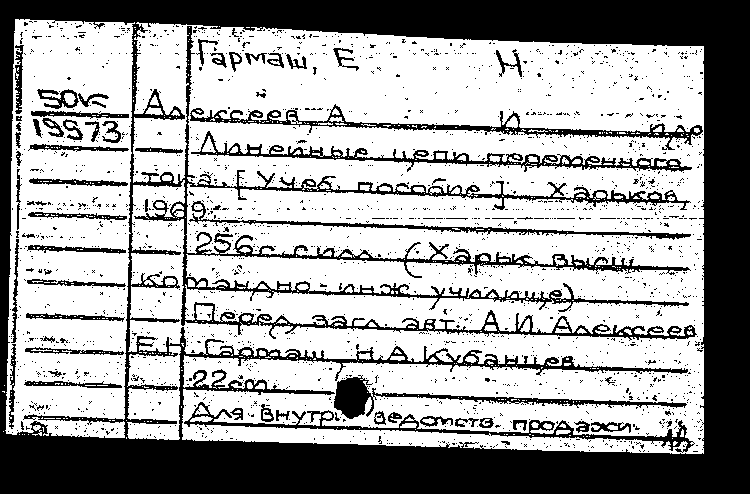 Гармаш, Е Н.
50к Алексеев, А И и др
19973 Линейные цепи переменного
тока. [Учеб. пособие]. Харьков,
1969.
256с. с илл. (Харьк. высш
командно-инж. училище).
Перед загл. авт.: А.И. Алексеев
Е.Н. Гармаш, Н.А. Кубанцев
22см.
Для внутр. ведомств. продажи.